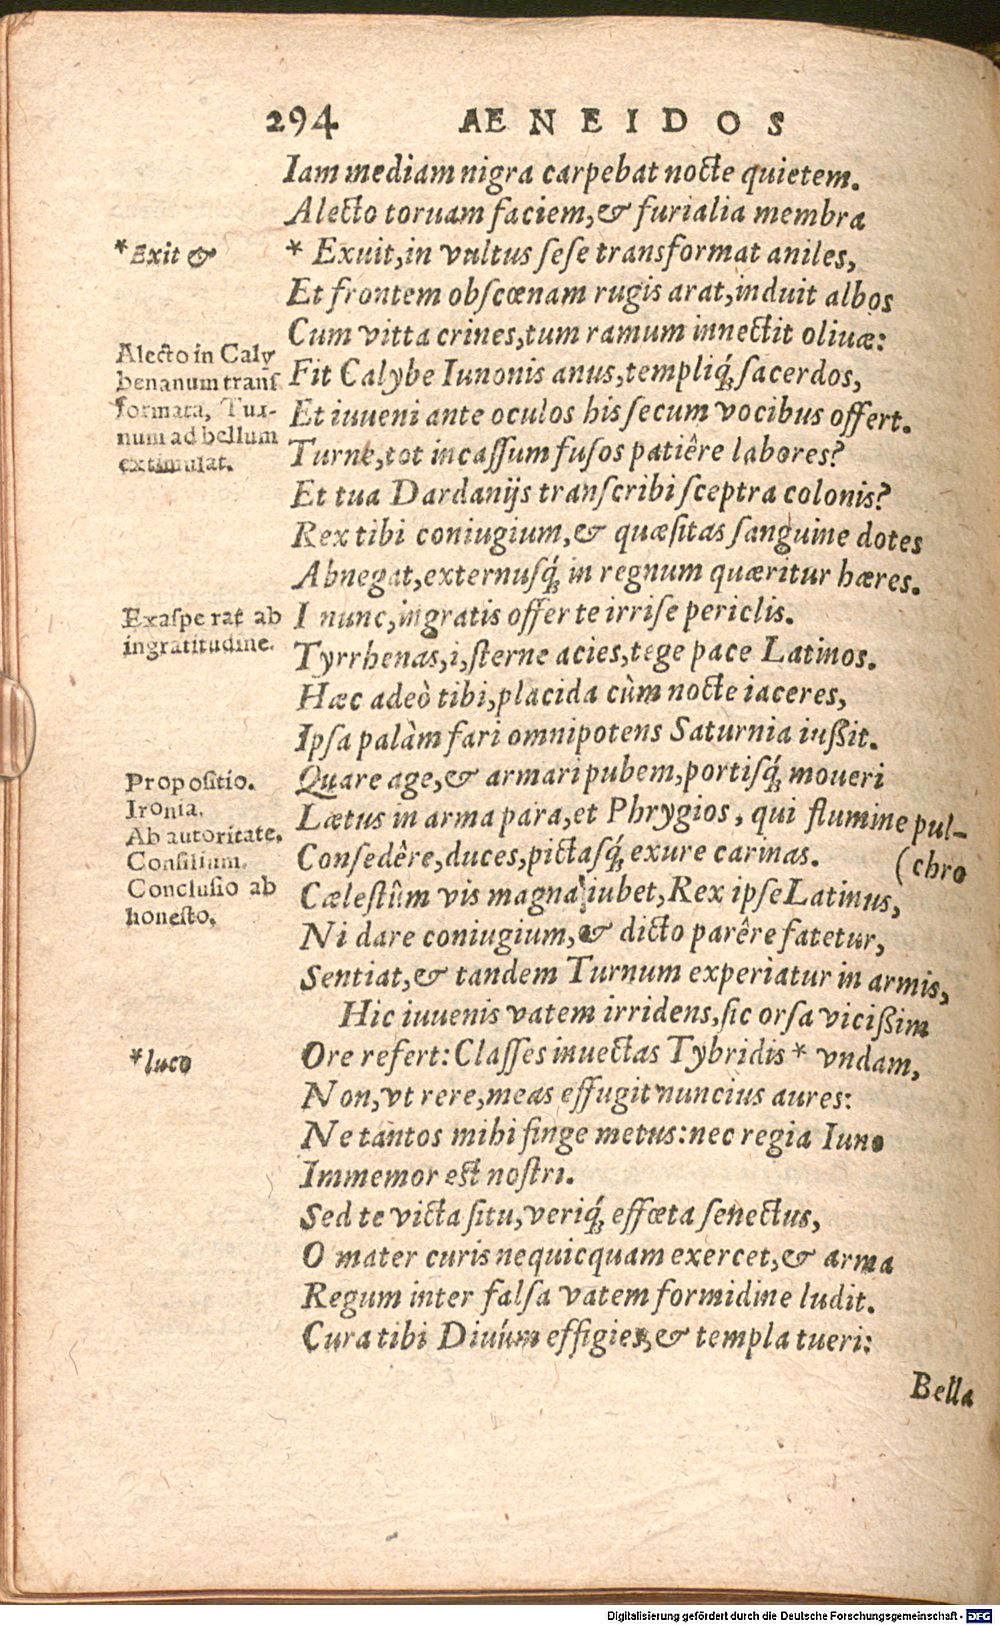 294 AENEIDOS
Iam mediam nigra carpebat nocte quietem.
Alecto toruam faciem, & furialia membra
*Exit &
* Exuit, in vultus ſeſe transformat aniles,
Et frontem obſcœnam rugis arat, induit albos
Cum vitta crines, tum ramum innectit oliuæ:
Alecto in Caly
benanum tranſ
formata, Tur-
num ad bellum
extimulat.
Fit Calybe Iunonis anus, templiq́; ſacerdos,
Et iuueni ante oculos his ſecum vocibus offert.
Turne, tot incaſſum fuſos patiêre labores?
Et tua Dardanijs tranſcribi ſceptra colonis?
Rex tibi coniugium, & quæſitas ſanguine dotes
Abnegat, externuſq́; in regnum quæritur hæres.
Exaſperat ab
ingratitudine.
I nunc, ingratis offer te irriſe periclis.
Tyrrhenas, i, ſterne acies, tege pace Latinos.
Hæc adeò tibi, placida cùm nocte iaceres,
Ipſa palàm fari omnipotens Saturnia iußit.
Propoſitio.
Ironia.
Ab autoritate.
Conſilium.
Concluſio ab
honeſto.
Quare age, & armari pubem, portiſq́; moueri
Lætus in arma para, et Phrygios, qui flumine pul-
(chro
Conſedêre, duces, pictaſq́; exure carinas.
Cæleſtûm vis magna iubet, Rex ipſe Latinus,
Ni dare coniugium, & dicto parêre fatetur,
Sentiat, & tandem Turnum experiatur in armis,
Hic iuuenis vatem irridens, ſic orſa vicißim
*luco
Ore refert: Claſſes inuectas Tybridis * vndam,
Non, vt rere, meas effugit nuncius aures:
Ne tantos mihi finge metus: nec regia Iuno
Immemor eſt noſtri.
Sed te victa ſitu, veriq́; effœta ſenectus,
O mater curis nequicquam exercet, & arma
Regum inter falſa vatem formidine ludit.
Cura tibi Diuúm effigies, & templa tueri:
Bella
Digitalisierung gefördert durch die Deutsche Forschungsgemeinschaft - DFG